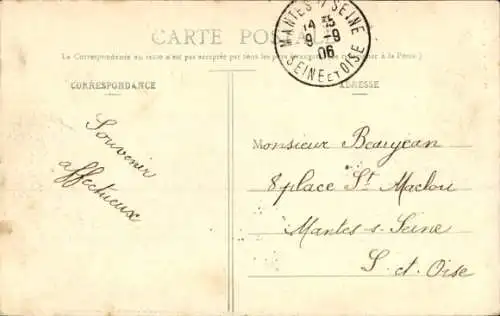 CARTE POSTALE
La Correspondance au recto n'est pas acceptée par tous les pays étrangers (Se renseigner à la Poste)
MANTES S/ SEINE
14 35
9 -9
06
SEINE ET OISE
CORRESPONDANCE
ADRESSE
Souvenir
affectueux
Monsieur Beaujean
8 place St Maclou
Mantes-s-Seine
S. et. Oise